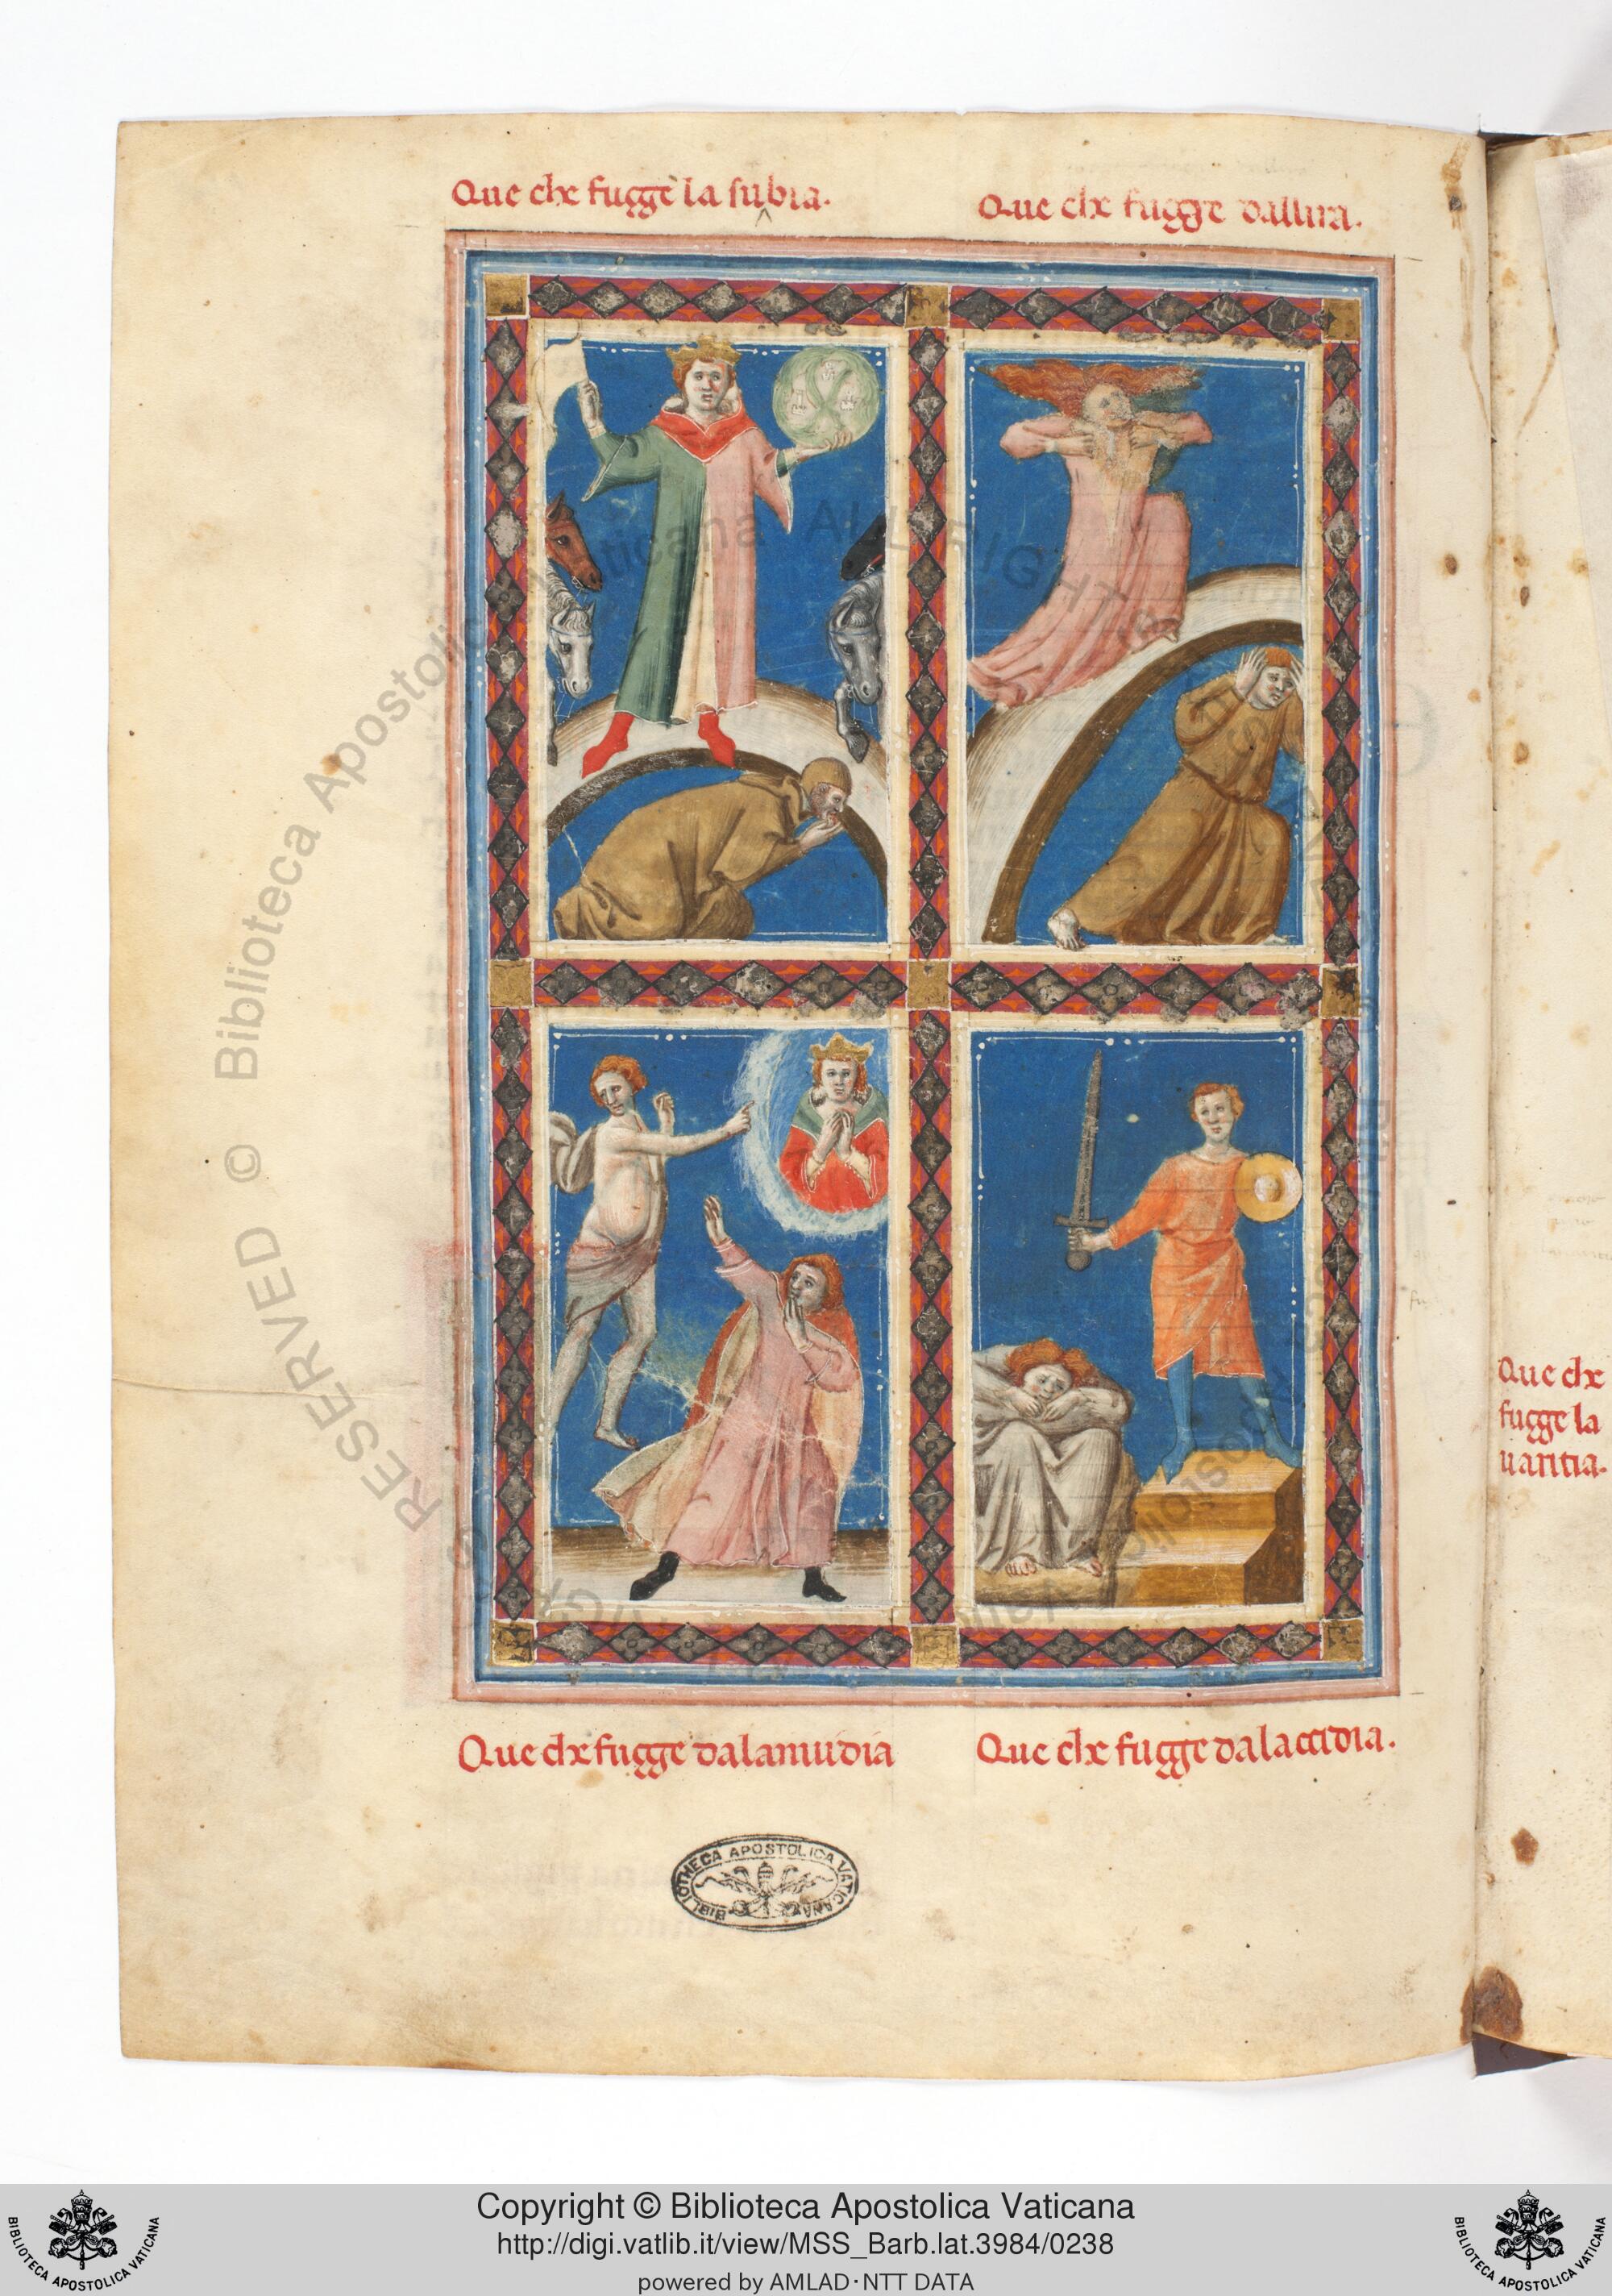 Que che fugge la subia.
Que che fugge dallira.
Que che
fugge la
uaritia.
Que che fugge dalanuidia
Que che fugge dalaccidia.
BIBLIOTHECA APOSTOLICA VATICANA
RESERVED © Biblioteca Apostolica Vaticana ALL RIGHTS
Copyright © Biblioteca Apostolica Vaticana
http://digi.vatlib.it/view/MSS_Barb.lat.3984/0238
powered by AMLAD·NTT DATA
BIBLIOTECA APOSTOLICA VATICANA
BIBLIOTECA APOSTOLICA VATICANA